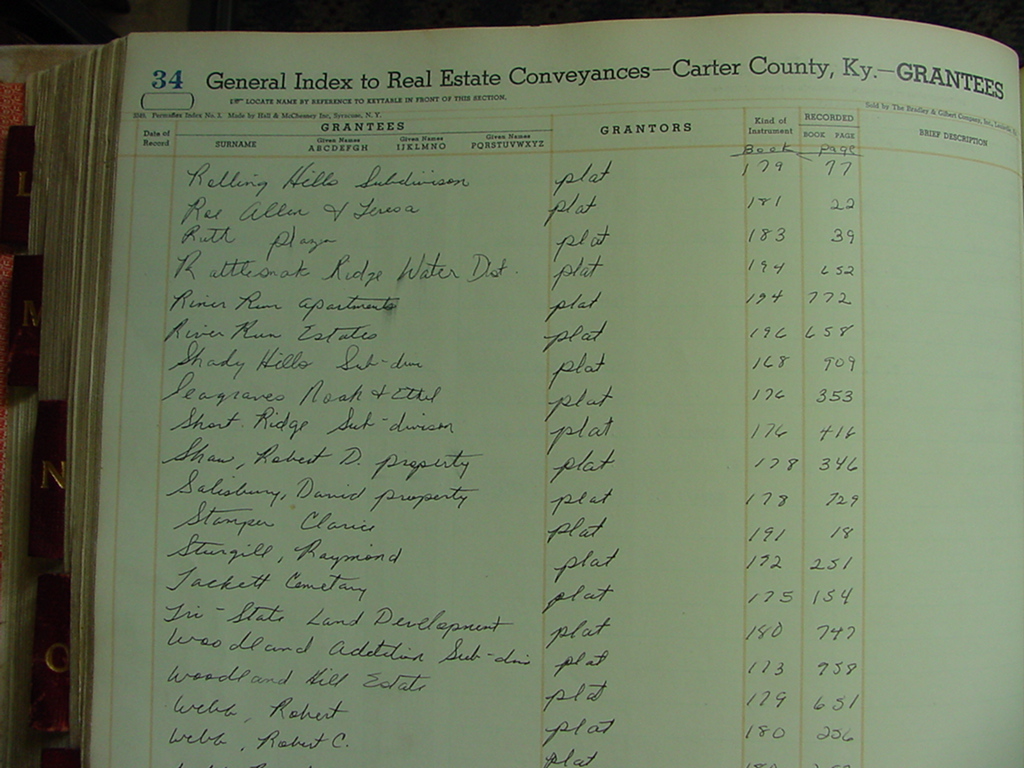 34 General Index to Real Estate Conveyances—Carter County, Ky.—GRANTEES
LOCATE NAME BY REFERENCE TO KEYTABLE IN FRONT OF THIS SECTION.
Index No. 1. Made by Hall & McChesney Inc, Syracuse, N. Y. Sold by The Bradley & Gilbert Company, Inc.
Date of Record GRANTEES GRANTORS Kind of Instrument RECORDED BRIEF DESCRIPTION
SURNAME Given Names ABCDEFGH Given Names IJKLMNO Given Names PQRSTUVWXYZ BOOK PAGE
Book Page
Rolling Hills Subdivison plat 179 77
Roe Allen & Teresa plat 181 22
Ruth plaza plat 183 39
Rattlesnak Ridge Water Dist. plat 194 652
River Run apartments plat 194 772
River Run Estates plat 196 658
Shady Hills Sub-divn plat 168 909
Seagraves Noah & Ethel plat 176 353
Short Ridge Sub-divison plat 176 416
Shaw, Robert D. property plat 178 346
Salisbury, David property plat 178 729
Stamper Clarice plat 191 18
Sturgill, Raymond plat 172 251
Tackett Cemetary plat 175 154
Tri-State Land Development plat 180 747
Woodland Addition Sub-divn plat 173 958
Woodland Hill Estate plat 179 651
Webb, Robert plat 180 256
Webb, Robert C. plat
L
M
N
O